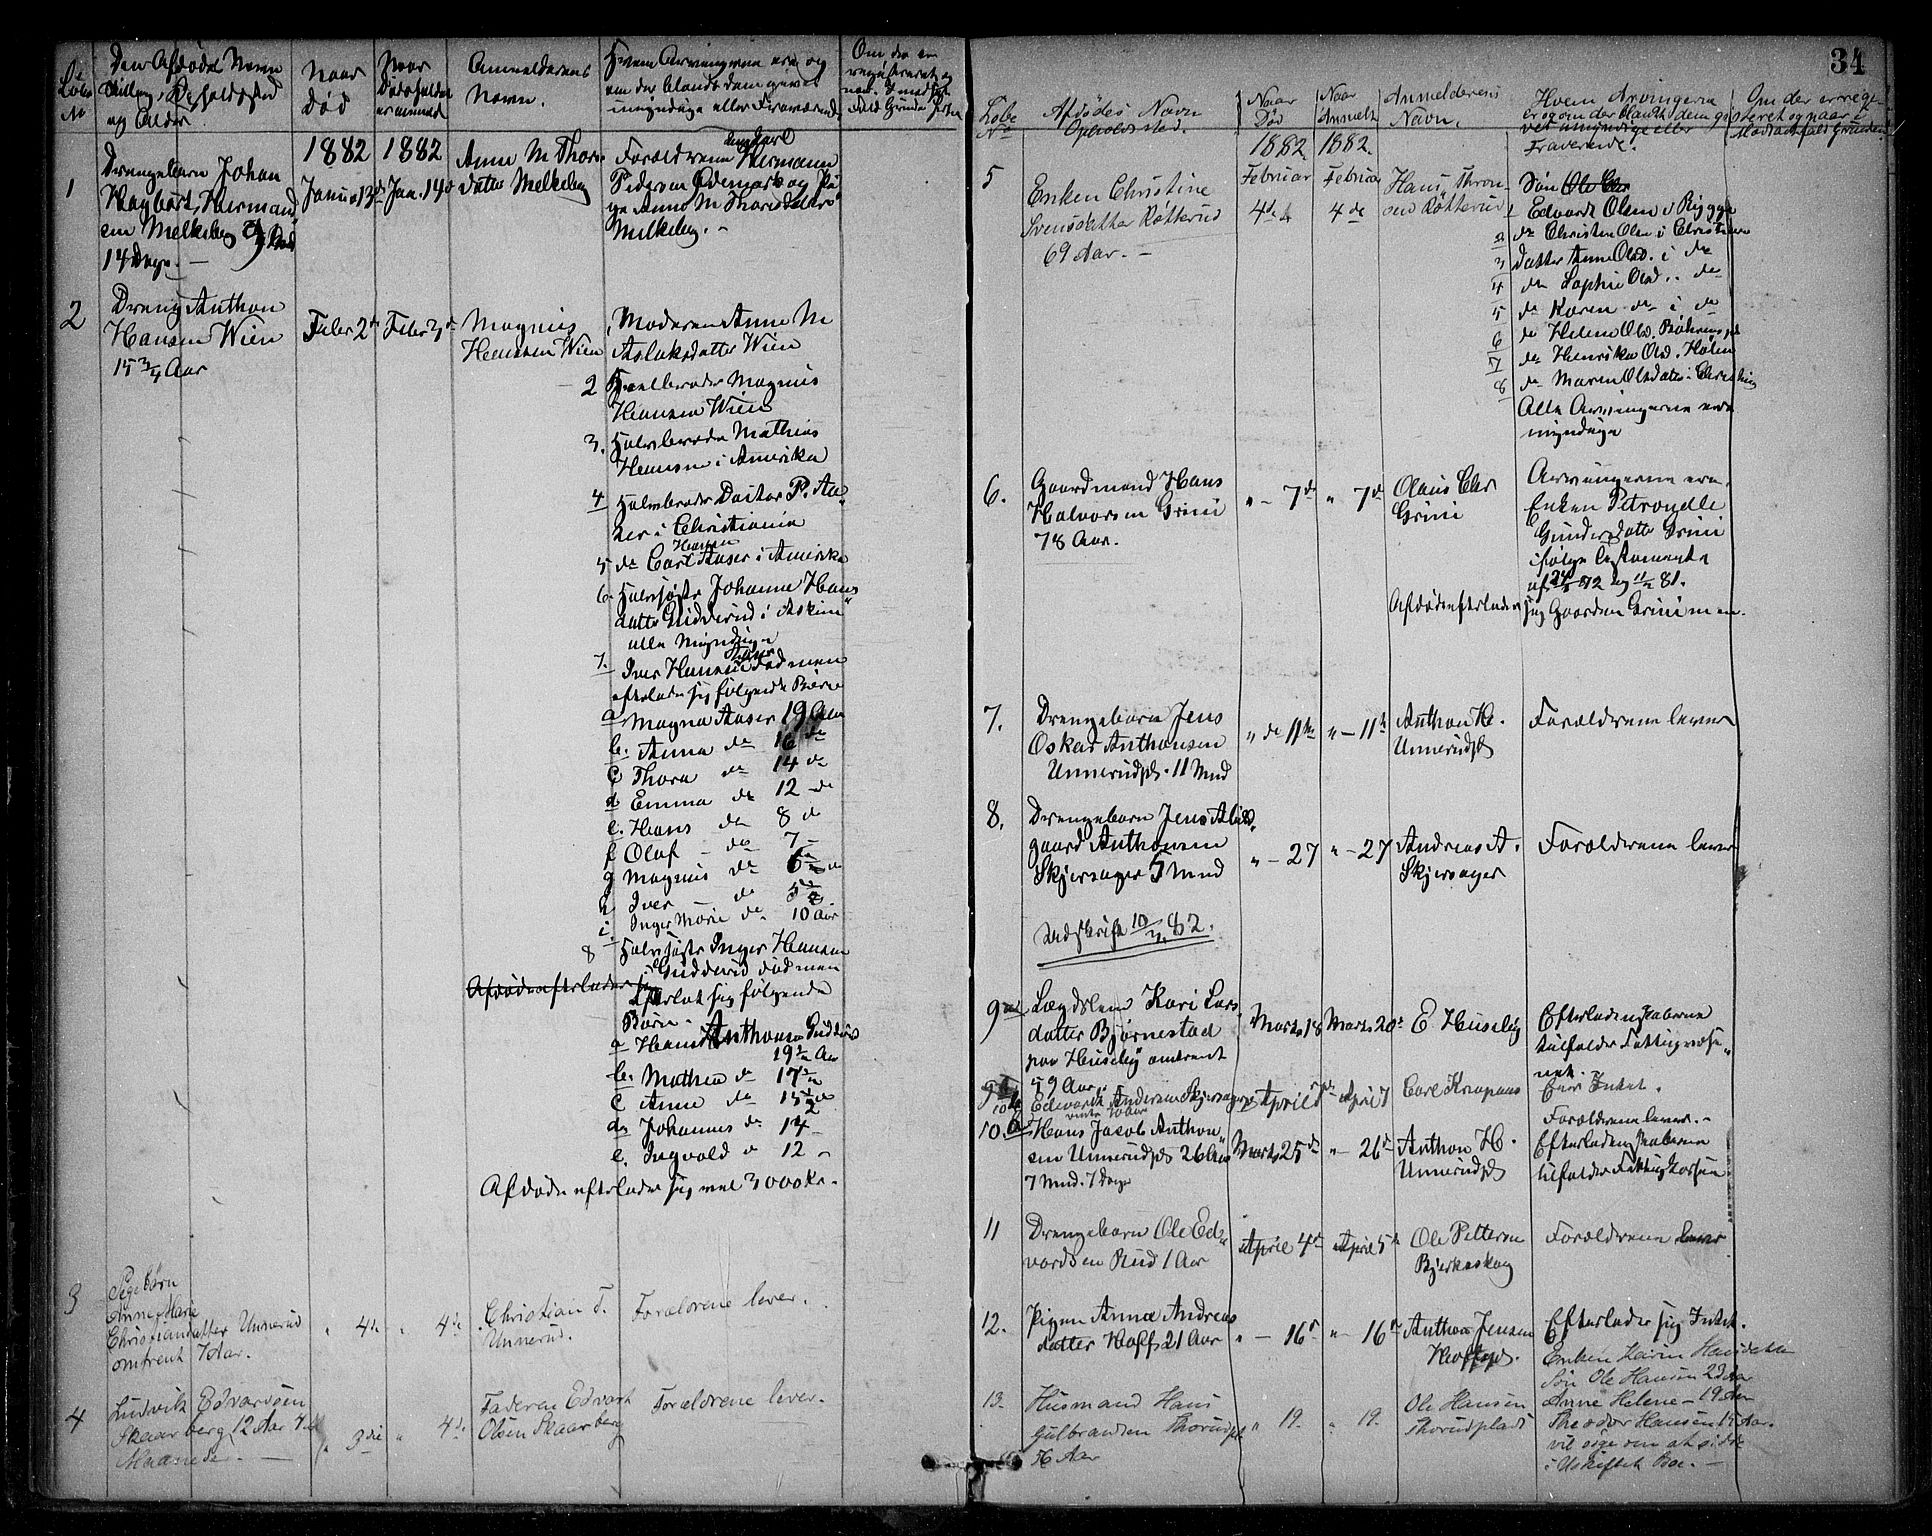 Løbe No
Den Afdødes Navn
Stilling, Opholdssted
og Alder.
Naar
død
Naar
Dødsfaldet
er anmeldt
Anmelderens
Navn.
Hvem Arvingerne ere og
om der blandt dem gives
umyndige eller Fraværende
Om der er
registreret og
1882
1882
1
Drengebarn Johan
Hagbart Hermand
sen Melkeby
14 Dage. —
Januar 13de
Jan. 14de
Anne M Thors
datter Melkeby
Forældrene
Ungkarl
Hermann
Pedersen Edemark og Pi
ge Anne M Thorsdatter
Melkeby. —
2
Dreng Anthon
Hansen Wien
15 3/4 Aar
Febr 2de
Febr 3de
Magnus
Hansen Wien
Moderen Anne M
Aslaksdatter Wien
2 Halvbroder Magnus
Hansen Wien
3. Halvbroder Mathias
Hansen i Amerika
4 Halvbroder Doctor P. Aa
ser i Christiania
5 do Carl Hansen Aaser i Amerika
6. Halvsøster Johanne Hans
datter Gudderud i Askim
alle Myndige
7. Iver Hansen Aaser død men
efterlader sig følgende Børn
a Magna Aaser 19 Aar
b. Anna do 16 do
c Thora do 14 do
d Emma do 12 do
e. Hans do 8 do
f Olaf – do 7 –
g Magnus do 6
h Iver – do 5
i. Inger Marie do 10 Aar
8 Halvsøster Inger Hansen
Gudderud død men
Afdøde efterlader sig
Efterlot sig følgende
Børn –
a Hans Anthonsen Gudderud
19 Aar
b. Mathea do 17
c Anne do 15
d Johannes do 14 –
e. Ingvald do 12 –
Afdøde efterlader sig vel 3000 Kr.
3
Pigebørn
Anne Marie
Christiansdatter Unnerud
omtrent 7 Aar.
" 4de
" 4de
Christian T.
Unnerud.
Forældrene lever.
4
Ludvik Edvardsen
Skaarberg, 12 Aar 7
Maaneder. —
" 3die
" 4de
Faderen Edvart
Olsen Skaarberg
Forældrene lever.
34
Løbe
No
Afdødes Navn
Opholdssted.
Naar
Død
Naar
Anmeldt
Anmelderens
Navn.
Hvem Arvingerne
er og om der blandt dem gi
ves umyndige eller
Fraverende.
Om der er regi-
steret og naar i
Modsat fald Grunden
1882
1882.
5
Enken Christine
Svensdatter Røtterud
69 Aar. —
Februar
4de
Februar
4de
Hans Thron
sen Røtterud
Søn Ole Chr
1 Edvardt Olsen i Rygge
2 do Christen Olsen i Christiania
3 Datter Anne Olsd. i do
4 do Sophie Olsd. . do
5 do Karen do i do
6 do Helene Olsd.
7 do Henrika Olsd. Hølen
8 do Maren Olsdatter i Christiania
Alle Arvingerne ere
myndige
6.
Gaardmand Hans
Halvorsen Grini
78 Aar.
" – 7de
" 7de
Olaus Chr
Grini
Arvingerne ere.
Enken Petronelle
Gundersdatter Grini
ifølge Testamente
af 24/ 72 og 11/ 81.
Afdøde efterlader sig Gaarden Grini m en.
7.
Drengebarn Jens
Oskar Anthonsen
Unnerudpl. 11 Mnd
" de 11te
" – 11te
Anthon H.
Unnerudpl
Forældrene lever
8.
Drengebarn Jens Alid
gaard Anthonsen
Skjersager 5 Mnd
" – 27
" – 27
Andreas A.
Skjersager
Forældrene lever
Udskrift 10/ 82.
9
Lægdslem Kari Lars
datter Bjørnestad
paa Huseby omtrent
59 Aar.
Marts 18
Marts 20de
E Huseby
Efterladenskaberne
tilfalder Fattigvæse
net.
Edvardt Andersen Skjersager
April
April 7
Carl Krapaas
Eier Intet.
Forældrene lever. –
10.
Hans Jacob Anthon
sen Unnerudpl 26 Aar
7 Mnd. 7 Dage
Marts 25de
" – 26de
Anthon H.
Unnerudpl
Efterladenskaberne
tilfalder Fattigkassen
11
Drengebarn Ole Ed
vardsen Rud 1 Aar
April 4de
April 5te
Ole Pettersen
Bjerkeskog
Forældrene lever
12.
Pigen Anna Andreas
datter Hoff 21 Aar
" – 16de
" – 16de
Anthon Jensen
Hoffspl.
Efterlader sig Intet.
13.
Husmand Hans
Gulbrandsen Thorudpl
56 Aar
" 19.
" 19.
Ole Hansen
Thorudplads
Enken Karen Hansdatter
Søn Ole Hansen 23 Aar
Anne Helene – 19 Aar
Theodor Hansen 14 Aar.
vil søge om at sidde
i Uskiftet Bo. —